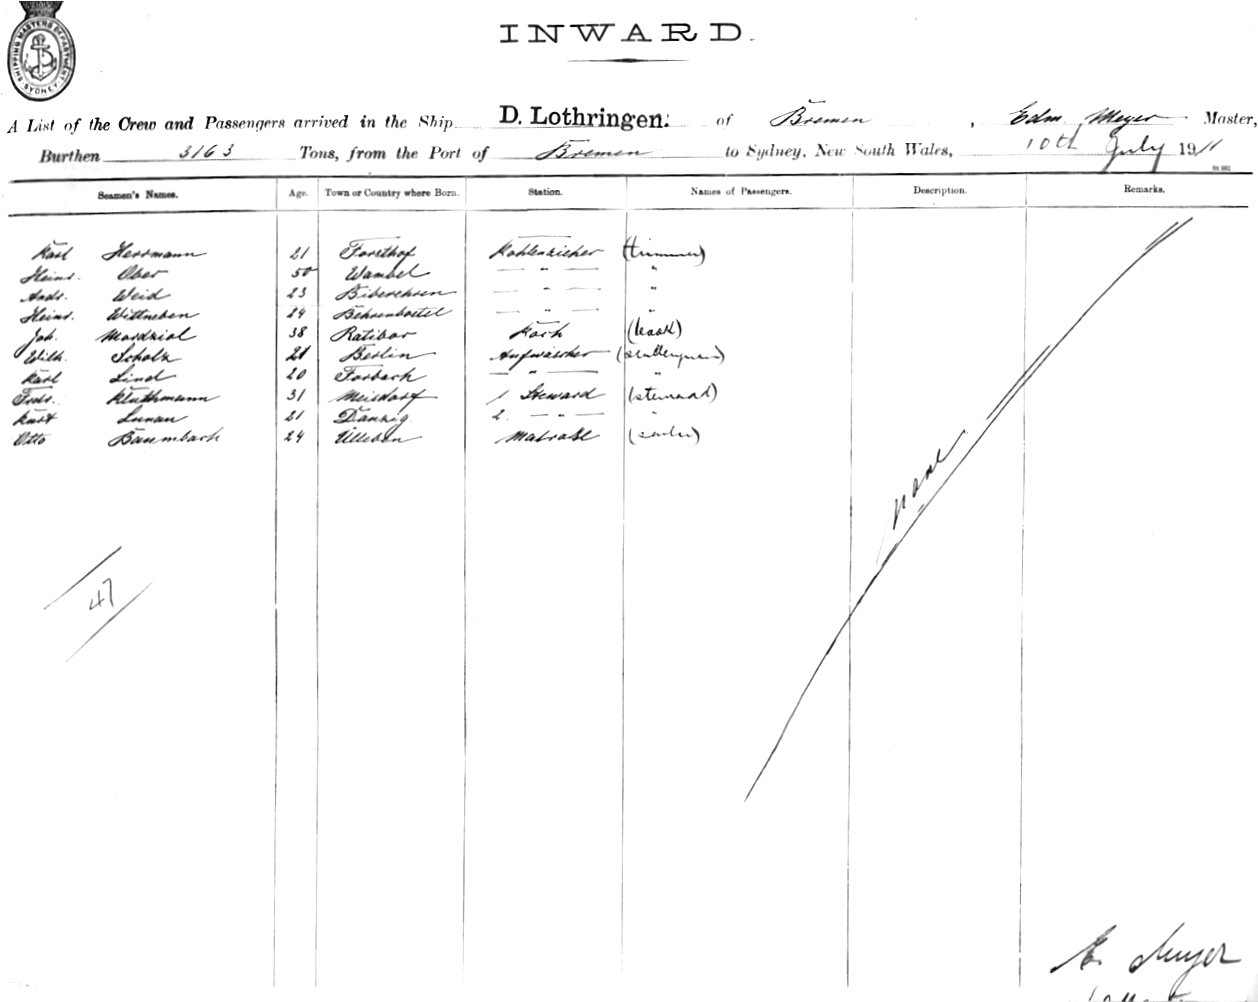 SHIPPING MASTERS DEPARTMENT SYDNEY
INWARD.
A List of the Crew and Passengers arrived in the Ship D. Lothringen. of Bremen, Edm. Meyer Master,
Burthen 3163 Tons, from the Port of Bremen to Sydney, New South Wales, 10th July 1911
Seamen's Names. Age. Town or Country where Born. Station. Names of Passengers. Description. Remarks.
Karl Herrmann 21 Forsthof Kohlenzieher (trimmer)
Heinr. Ober 50 Wambel — " — "
Andr. Weid 23 — " — "
Heinr. Wittneben 24 Behrenbostel — " — "
Joh. Mordziol 38 Ratibor Koch (cook)
Wilh. Scholz 21 Berlin Aufwäscher
Karl Lind 20 Forbach — " — "
Fredr. Kluthmann 31 Meisdorf 1. Steward (steward)
Kurt Lunau 21 Danzig 2. — " — "
Otto Baumbach 24 Ülleben Matrose (sailor)
none
47
E. Meyer